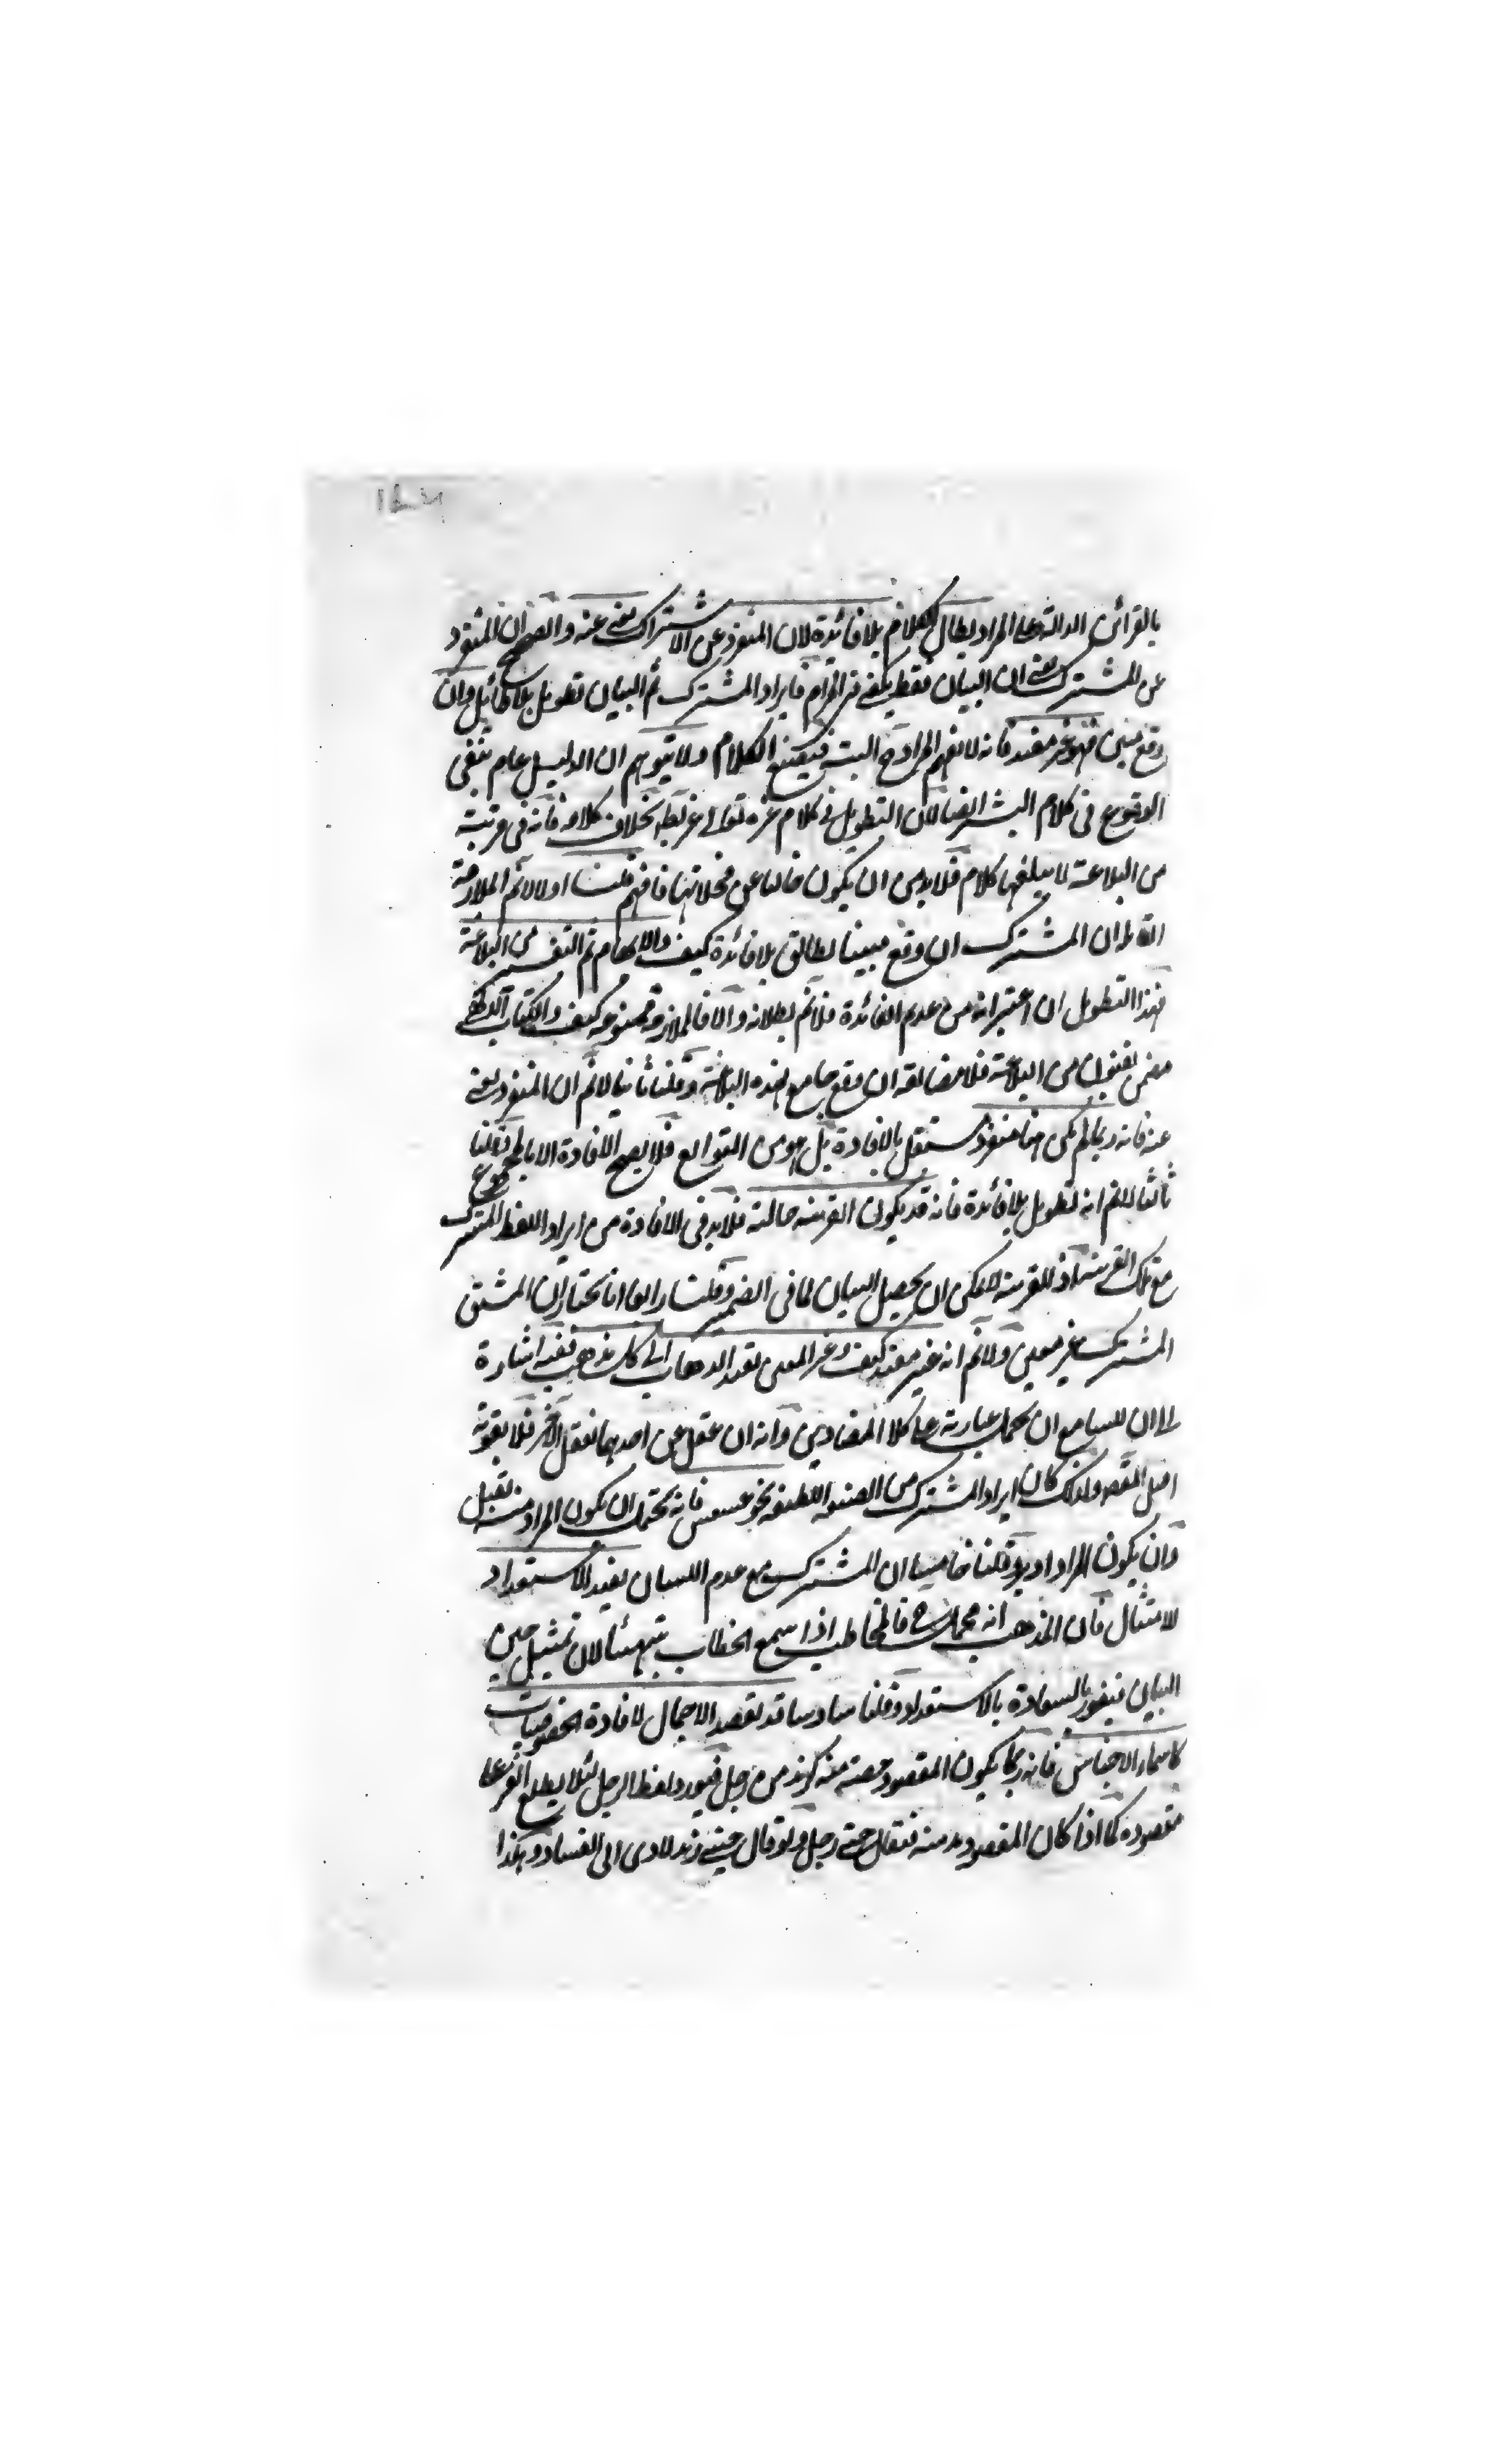 بالقرائن الدالة على المراد يطال الكلام بلا فائدة لان المنفرد عن الاشتراك مغنى عنه والصحيح ان المنفرد
عن المشترك يعنى ان البيان فقط يكفى فى المرام فايراد المشترك ثم البيان تطويل بلا طائل وان
وقع غير مبين فهو غير مفيد فانه لا يفهم المراد ح البتة فيضيع الكلام ولا يتوهم ان الدليل عام ينفى
الوقوع فى كلام البشر ايضا لان التطويل فى كلام غيره تعالى غير بخلاف كلامه فانه فى مرتبة
من البلاغة لا يبلغها كلام فلا بد من ان يكون خاليا عن مخلاتها فافهم قلنا اولا لا نم الملازمة
القائلة ان المشترك ان وقع مبينا يطال بلا فائدة كيف والابهام ثم التفسير من البلاغة
فهذا التطويل ان اعتبر انه من عدم الفائدة فلا نم بطلانه والا فالملازمة ممنوعة كيف والكتاب الالهى
بفنون من البلاغة فلا مضايقة ان وقع جامع لهذه البلاغة وقلنا ثانيا لا نم ان المنفرد يغنى
عنه فانه ربما لم يكن هنا منفرد مستقل بالافادة بل هو من التوابع فلا يصح الافادة الا بالمجموع وقلنا
ثالثا لا نم انه تطويل بلا فائدة فانه قد يكون القرينة حالية فلا بد فى الافادة من ايراد اللفظ المشترك
مع تلك القرينة اذ للقرينة لا يمكن ان يحصل البيان لما فى الضمير وقلنا رابعا انا نختار ان المشتق
المشترك غير مبين ولا نم انه غير مفيد كيف وغير المبين يفيد الذهاب الى كل مذهب ففيه اشارة
الى ان للسامع ان يحمل عبارته على كلا المفادين وانه ان غفل عن احدهما فعقل الآخر فلا يفوته
اصل المقصود لذلك كان ايراد المشترك من الصنعة اللطيفة نحو عسعس فانه يحتمل ان يكون المراد منه تقبل
وان يكون المراد ادبر وقلنا خامسا ان المشترك مع عدم البيان يفيد الاستعداد
للامتثال فان المذهب انه مجمل ح فالمخاطب اذا سمع الخطاب يتهيأ لان تمثيل حين
البيان فيفوز بالسعادة بالاستعداد وقلنا سادسا قد يقصد الاجمال لافادة الخصوصيات
كاسماء الاجناس فانه ربما يكون المقصود حصة منه كزيد من رجل فيورد لفظ الرجل لئلا يطلع الغير على
مقصوده كما اذا كان المقصود زيد منه فيقال جئنى رجل ولو قال جئنى زيد لادى الى الفساد وهكذا